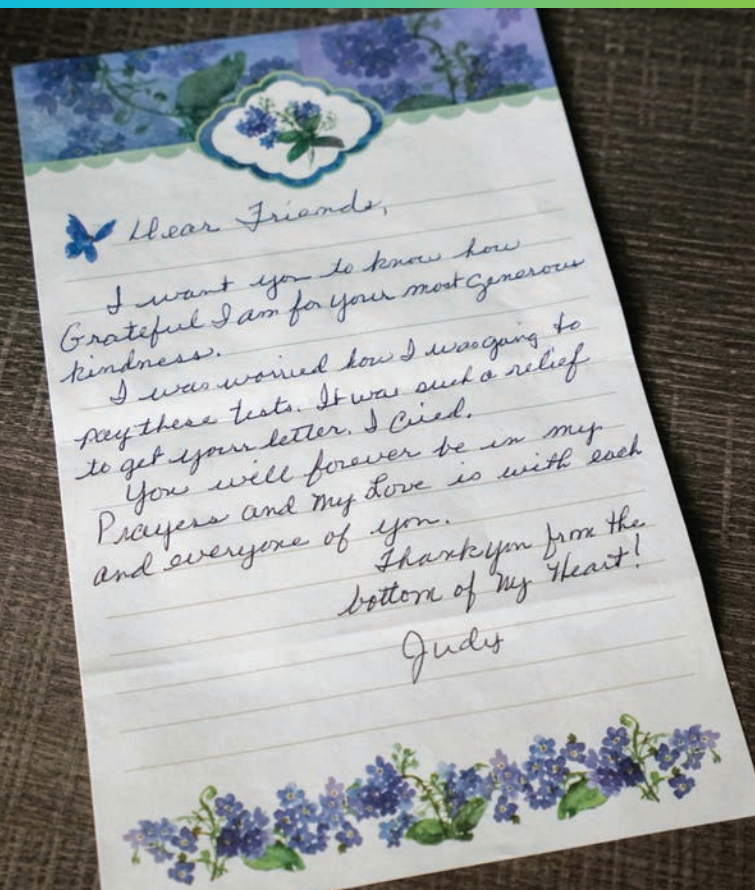 Dear Friends,
I want you to know how
Grateful I am for your most Generous
kindness.
I was worried how I was going to
pay these tests. It was such a relief
to get your letter. I cried.
You will forever be in my
Prayers and my Love is with each
and everyone of you.
Thank you from the
bottom of My Heart!
Judy